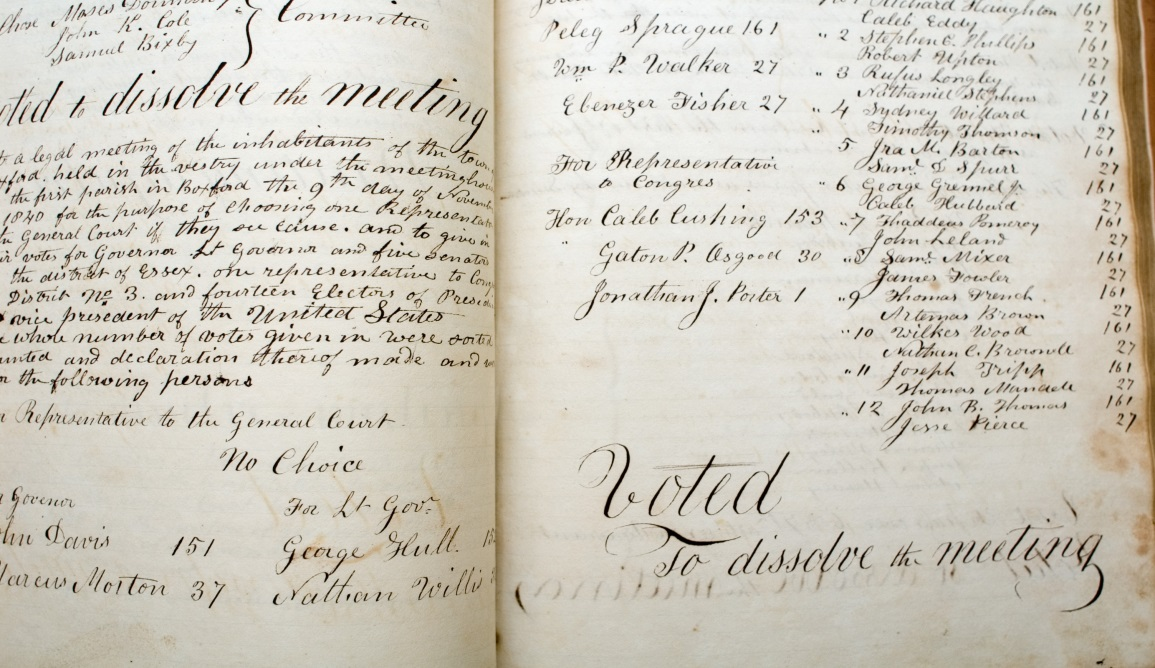 Moses
John K. Cole
Samuel Bixby
Committee
to dissolve the meeting
a legal meeting of the inhabitants of the town
held in the vestry under the meetinghouse
the first parish in Boxford the 9th day of Novem
1840 for the purpose of choosing one Representati
General Court if they see cause. and to give in
votes for Governor Lt Governor and five Senators
the district of Essex. one representative to Cong
District No 3. and fourteen Electors of Presid
vice president of the United States
whole number of votes given in were sorted
and declaration thereof made and
the following persons
Representative to the General Court
No Choice
Govenor
For Lt Govr
Davis 151
George Hull. 15
Morton 37
Nathan Willis
Peleg Sprague 161
Wm P. Walker 27
Ebenezer Fisher 27
For Representative
to Congres
Hon Caleb Cushing 153
" Gaton P. Osgood 30
Jonathan J. Porter 1
Richard Haughton 161
Caleb Eddy 27
" 2 Stephen C. Phillips 161
Robert Upton 27
" 3 Rufus Longley 161
Nathaniel Stephens 27
" 4 Sydney Willard 161
" Timothy Thomson 27
5 Ira M. Barton 161
Saml D Spurr 27
" 6 George Grennel Jr 161
Caleb Hubbard 27
" 7 Thaddeus Pomeroy 161
John Leland 27
" 8 Saml Mixer 161
James Fowler 27
" 9 Thomas French 161
Artemas Brown 27
" 10 Wilkes Wood 161
Nathan C. Brownell 27
" 11 Joseph Tripp 161
Thomas Mandell 27
" 12 John B. Thomas 161
Jesse Pierce 27
Voted
To dissolve the meeting